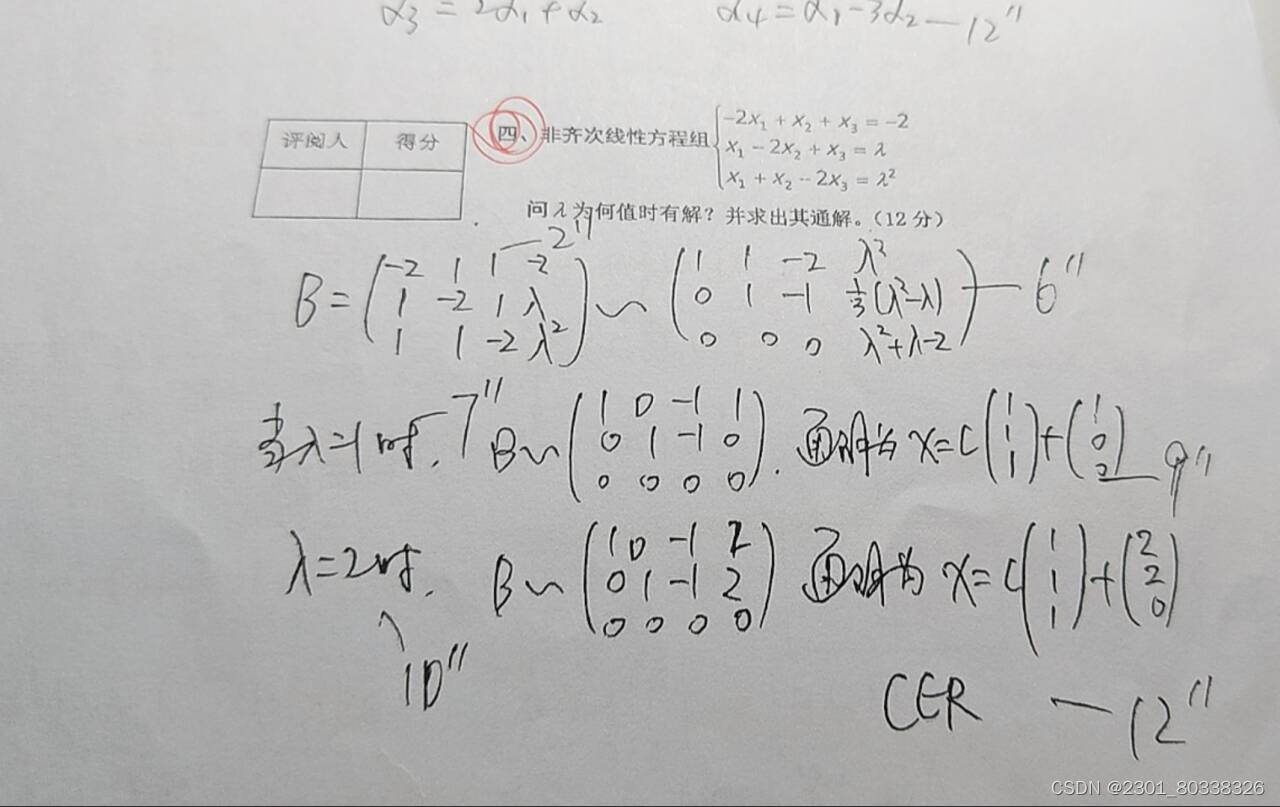 α3 = 2α1 + α2 α4 = α1 - 3α2 — 12"
评阅人 得分
四、非齐次线性方程组
-2x₁ + x₂ + x₃ = -2
x₁ - 2x₂ + x₃ = λ
x₁ + x₂ - 2x₃ = λ²
问λ为何值时有解？并求出其通解。(12 分)
— 2"
B = ( -2 1 1 -2 ~ ( 1 1 -2 λ²
1 -2 1 λ 0 1 -1 1/3(λ²-λ)
1 1 -2 λ² ) 0 0 0 λ²+λ-2 ) — 6"
当λ=1时. — 7" B ~ ( 1 0 -1 1
0 1 -1 0
0 0 0 0 ). 通解为 x = c ( 1 1 1 ) + ( 1 0 0 ) — 9"
λ=2时. B ~ ( 1 0 -1 2
0 1 -1 2
0 0 0 0 ) 通解为 x = c ( 1 1 1 ) + ( 2 2 0 )
10"
C∈R — 12"
CSDN @2301_80338326